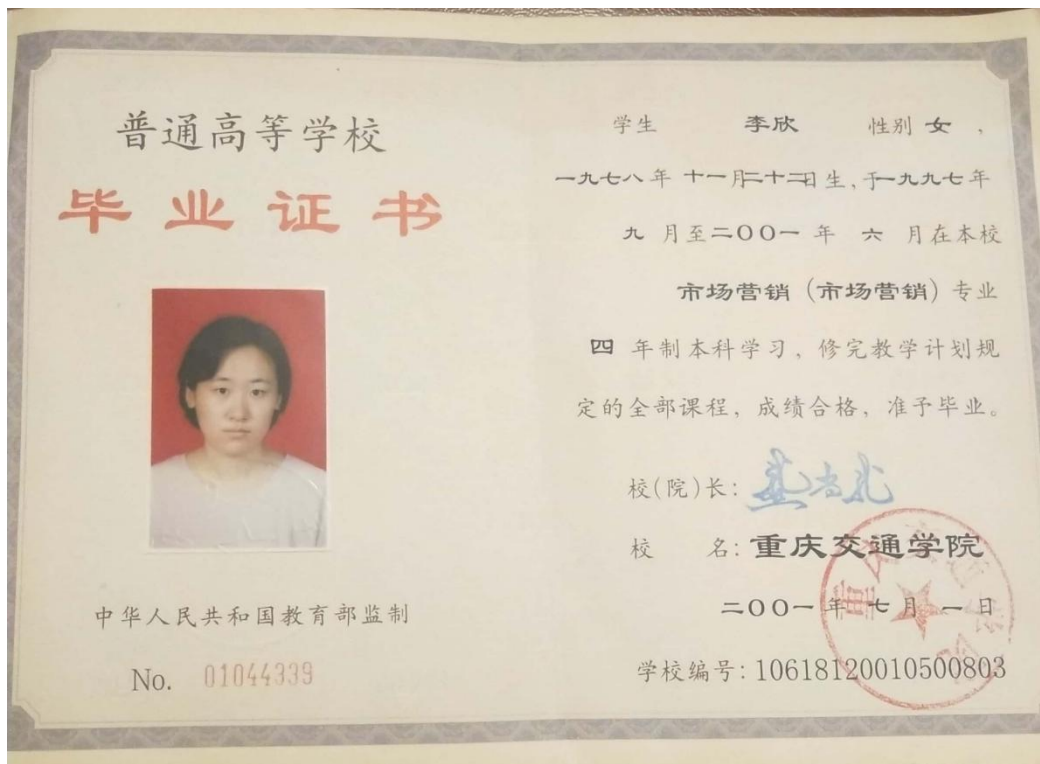 普通高等学校
毕业证书
中华人民共和国教育部监制
No. 01044339
学生 李欣 性别 女，
一九七八年 十一月二十二日生，于一九九七年
九 月至二〇〇一 年 六 月在本校
市场营销（市场营销）专业
四 年制本科学习，修完教学计划规
定的全部课程，成绩合格，准予毕业。
校(院)长：
校 名：重庆交通学院
二〇〇一年 七月 一 日
学校编号：10618120010500803